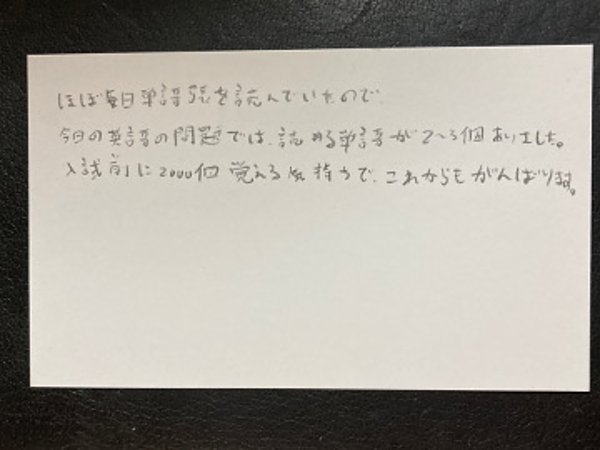 ほぼ毎日単語張を読んでいたので、
今日の英語の問題では、読める単語が2~3個ありました。
入試前に2000個覚える気持ちで、これからもがんばります。